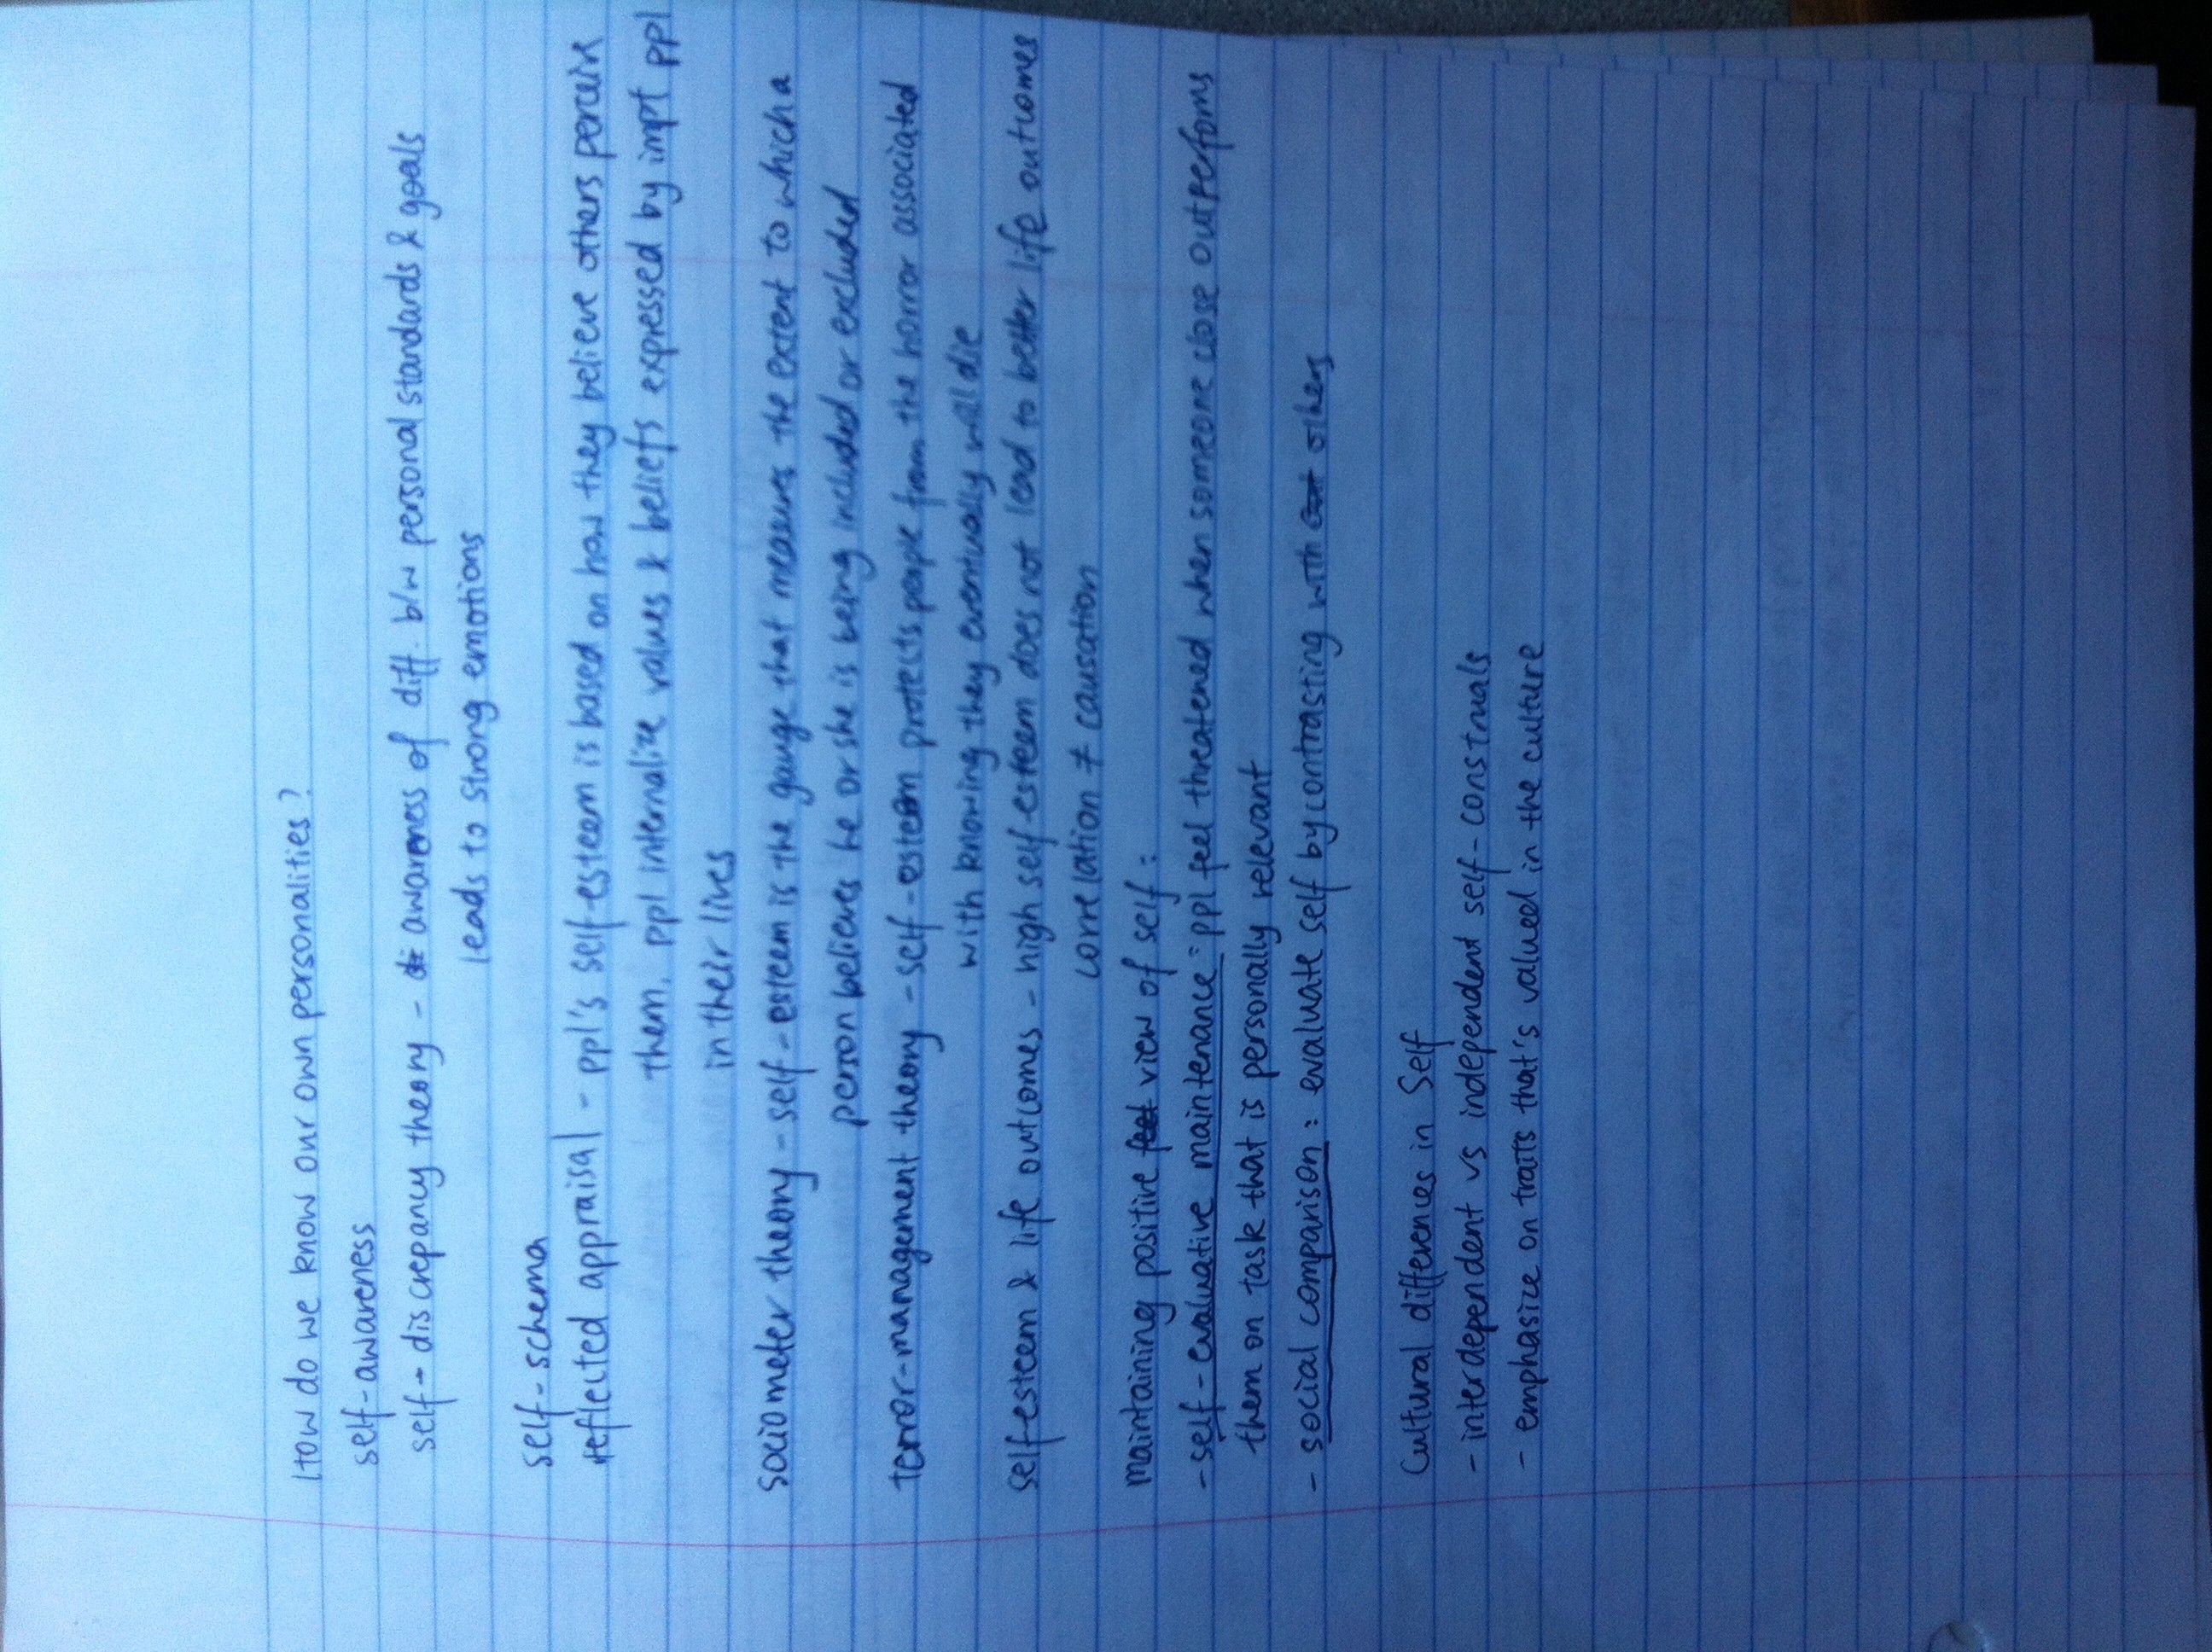 How do we know our own personalities?
self-awareness
self-discrepancy theory - awareness of diff. b/w personal standards & goals
leads to strong emotions
self-schema
reflected appraisal - ppl's self-esteem is based on how they believe others perceive
them. ppl internalize values & beliefs expressed by impt ppl
in their lives
sociometer theory - self-esteem is the gauge that measures the extent to which a
person believes he or she is being included or excluded
terror-management theory - self-esteem protects people from the horror associated
with knowing they eventually will die
self-esteem & life outcomes - high self esteem does not lead to better life outcomes
correlation ≠ causation
maintaining positive view of self:
- self-evaluative maintenance: ppl feel threatened when someone close outperforms
them on task that is personally relevant
- social comparison: evaluate self by contrasting with others
Cultural differences in Self
- interdependent vs independent self-construals
- emphasize on traits that's valued in the culture